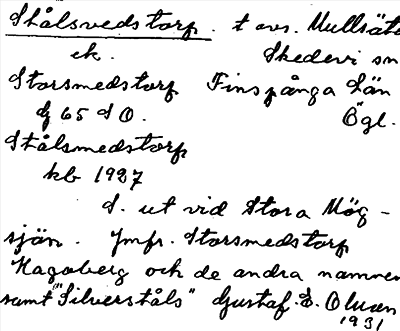 Stålsvedstorp. t avs. Mullsäte
ek. Skedevi sn
Storsmedstorp Finspånga Län
Gf 65 SO. Ögl.
Stålsmedstorp
kb 1927
S. ut vid Stora Mög-
sjön. Jmfr. Storsmedstorp
Hagaberg och de andra namnen
samt "Silverståls" Gustaf. E. Olson
1931